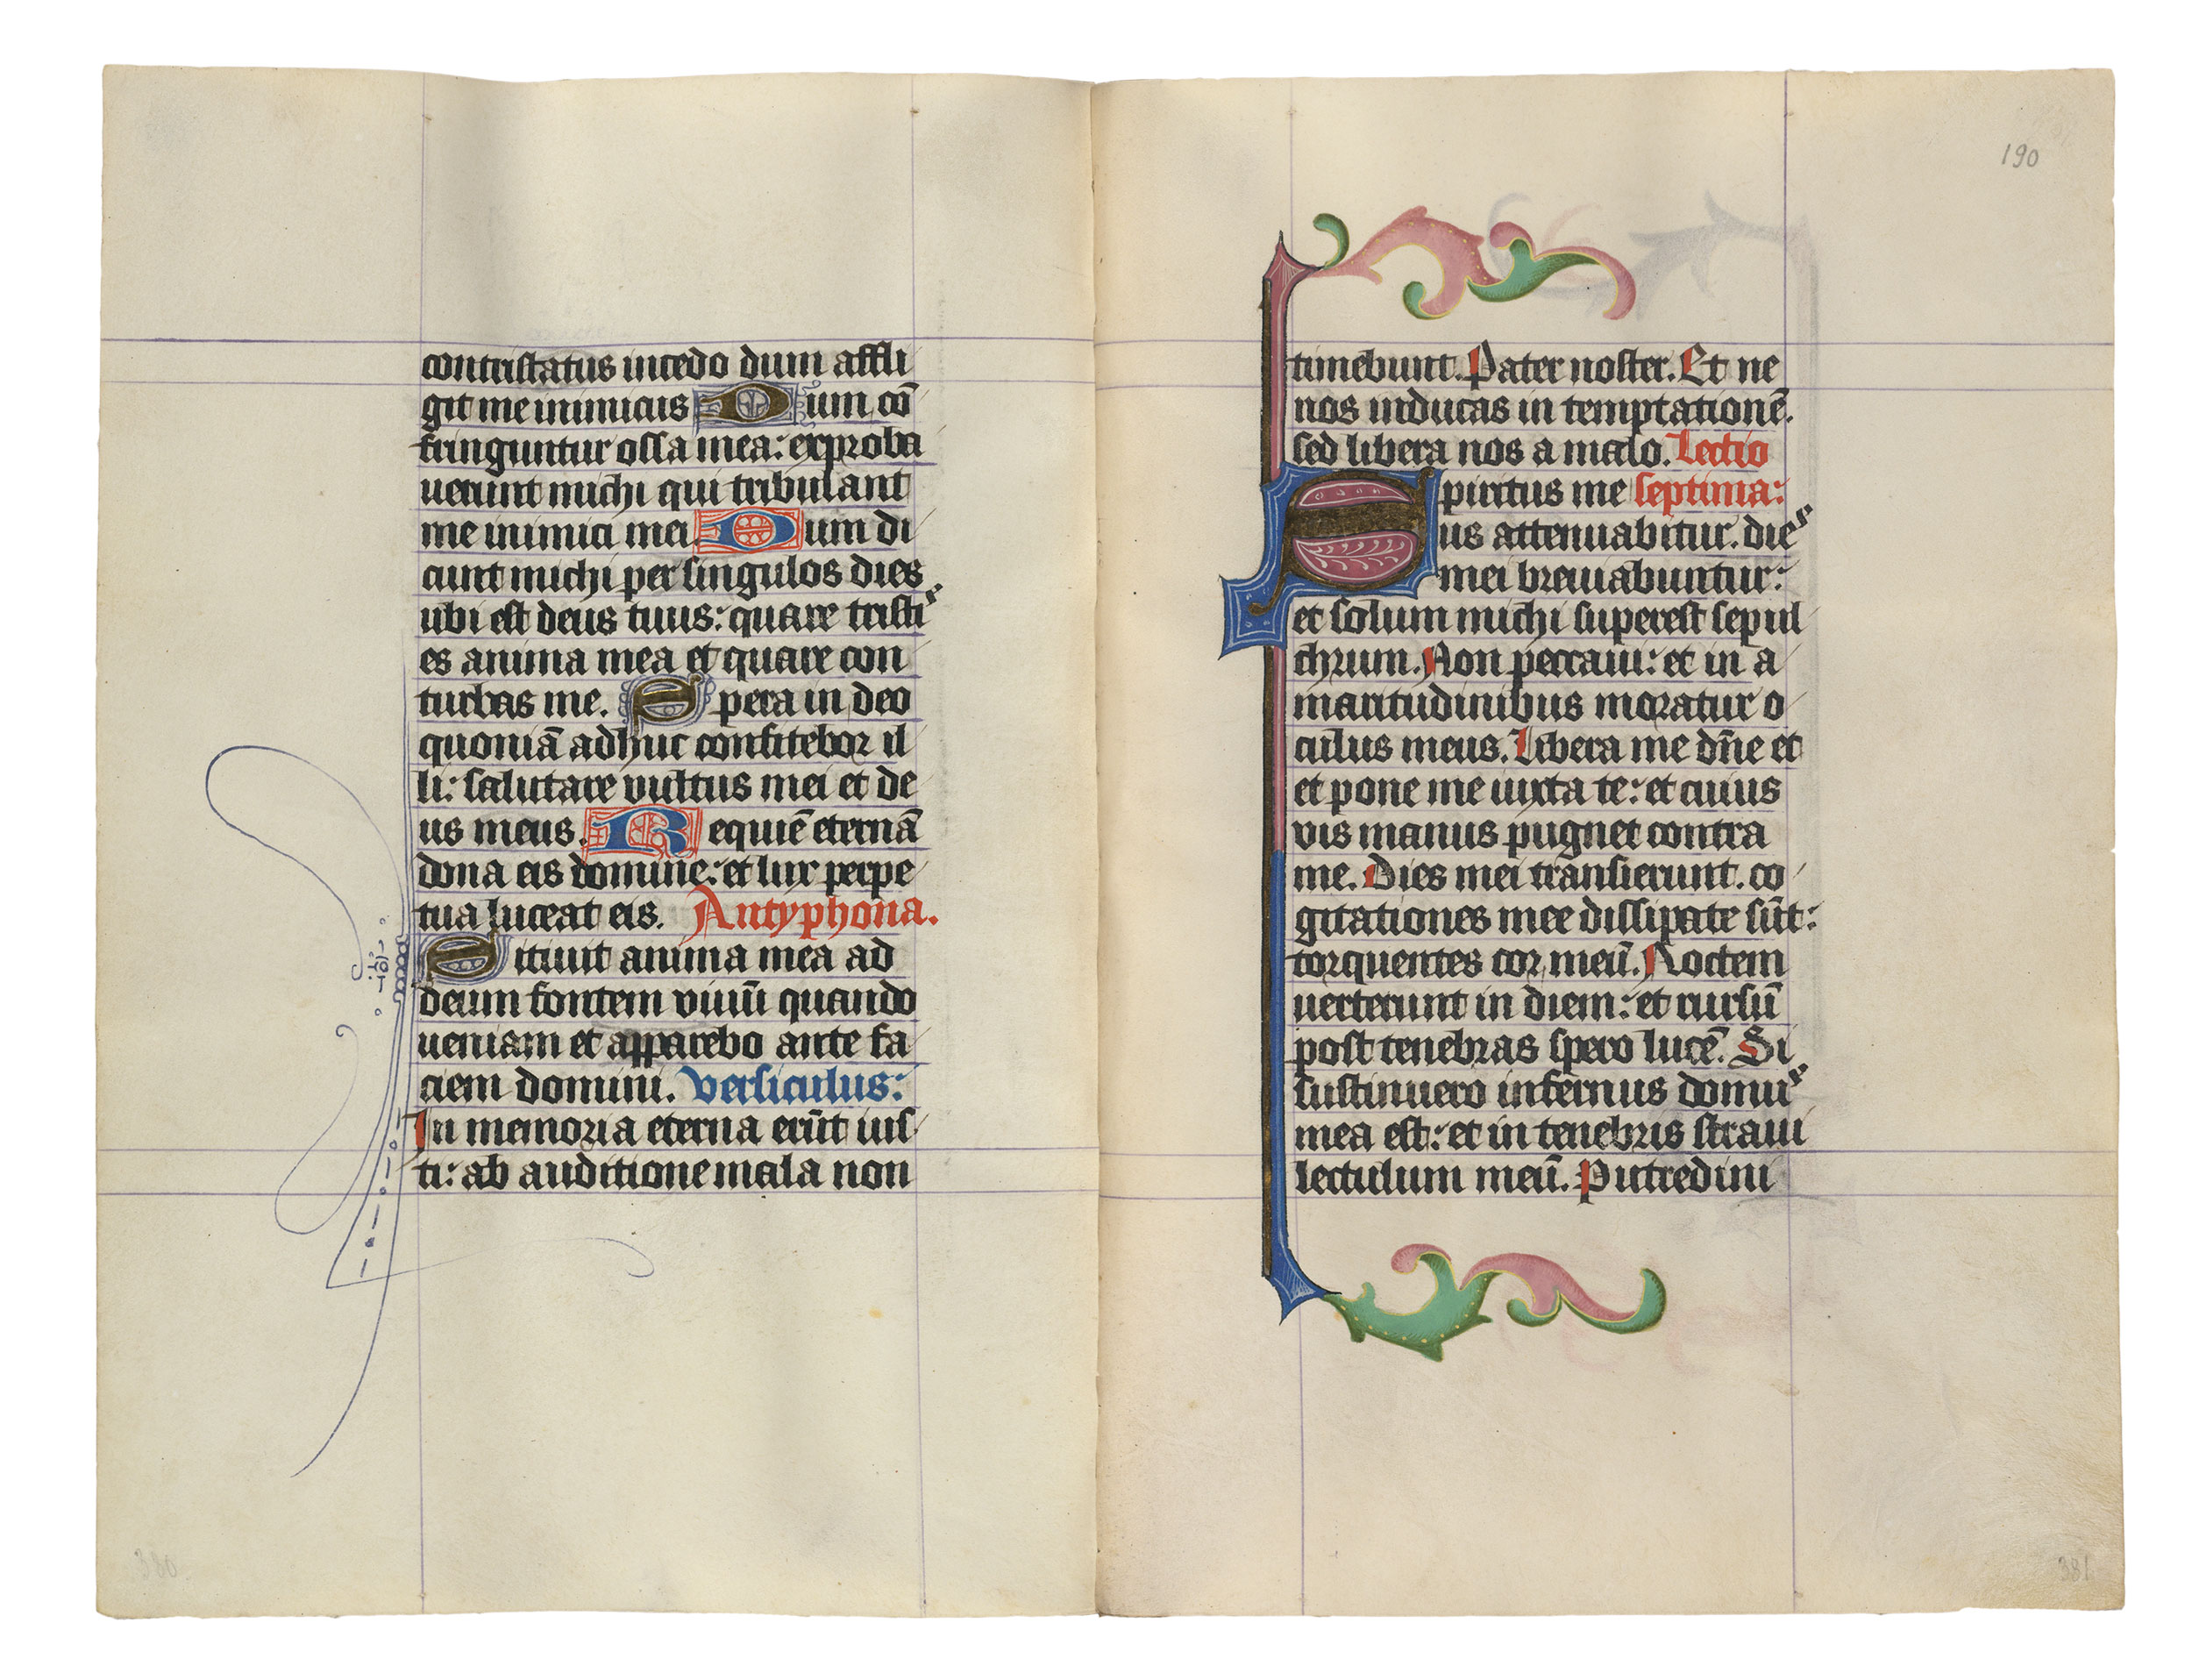 contristatus incedo dum affli
git me inimicus Dum cō
fringuntur ossa mea: exproba
uerunt michi qui tribulant
me inimici mei. Dum di
cunt michi per singulos dies
ubi est deus tuus: quare tristis
es anima mea et quare con
turbas me. Spera in deo
quoniā adhuc confitebor il
li: salutare vultus mei et de
us meus. Requiē eternā
dona eis domine: et lux perpe
tua luceat eis. Antyphona.
Sitiuit anima mea ad
deum fontem viuū quando
ueniam et apparebo ante fa
ciem domini. versiculus:
In memoria eterna erūt ius
ti: ab auditione mala non
380
190
timebunt. Pater noster. Et ne
nos inducas in temptationē.
sed libera nos a malo. Lectio
Spiritus me septima:
us attenuabitur. dies
mei breuiabuntur:
et solum michi superest sepul
chrum. Non peccaui: et in a
maritudinibus moratur o
culus meus. Libera me dn̄e et
et pone me iuxta te: et cuius
vis manus pugnet contra
me. Dies mei transierunt. co
gitationes mee dissipate sūt:
torquentes cor meū. Noctem
uerterunt in diem: et rursū
post tenebras spero lucē. Si
sustinuero infernus domus
mea est: et in tenebris straui
lectulum meū. Putredini
381